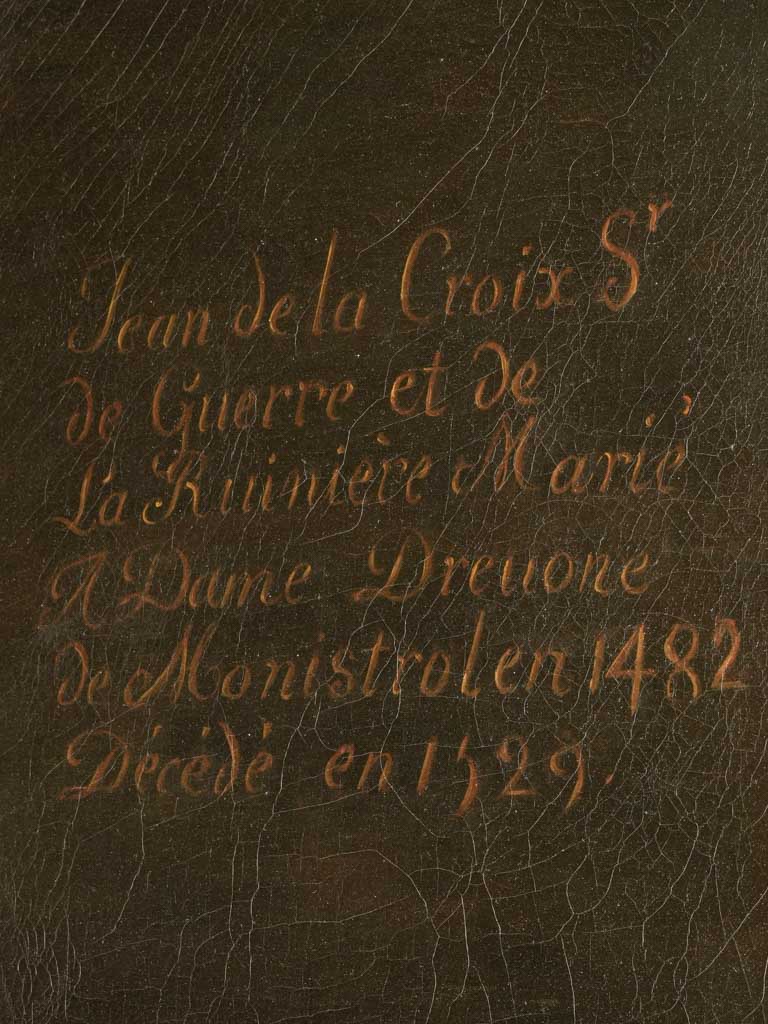 Jean de la Croix Sr
de Guerre et de
La Ruinière Marié
A Dame Dreuone
de Monistrol en 1482
Décédé en 1529.